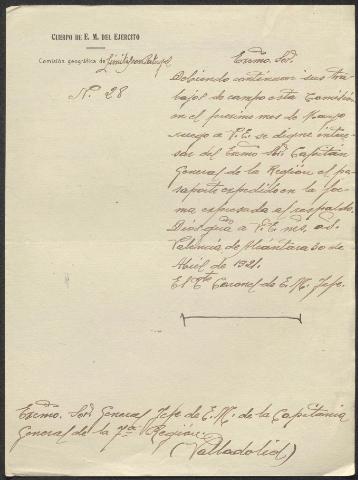 CUERPO DE E. M. DEL EJERCITO
Comisión geográfica de Límites con Portugal
Nº 28
Excmo. Sor.
Debiendo continuar sus tra-
bajos de campo esta Comisión
en el proximo mes de Mayo
ruego a V.E. se digne intere-
sar del Excmo Sor Capitán
General de la Región el pa-
saporte expedido en la for-
ma expresada al respaldo.
Dios gue a V.E. ms. as.
Valencia de Alcántara 30 de
Abril de 1921.
El Tte Coronel de E. M. Jefe.
Excmo. Sor General Jefe de E. M. de la Capitania
General de la 7ª Región.
(Valladolid)